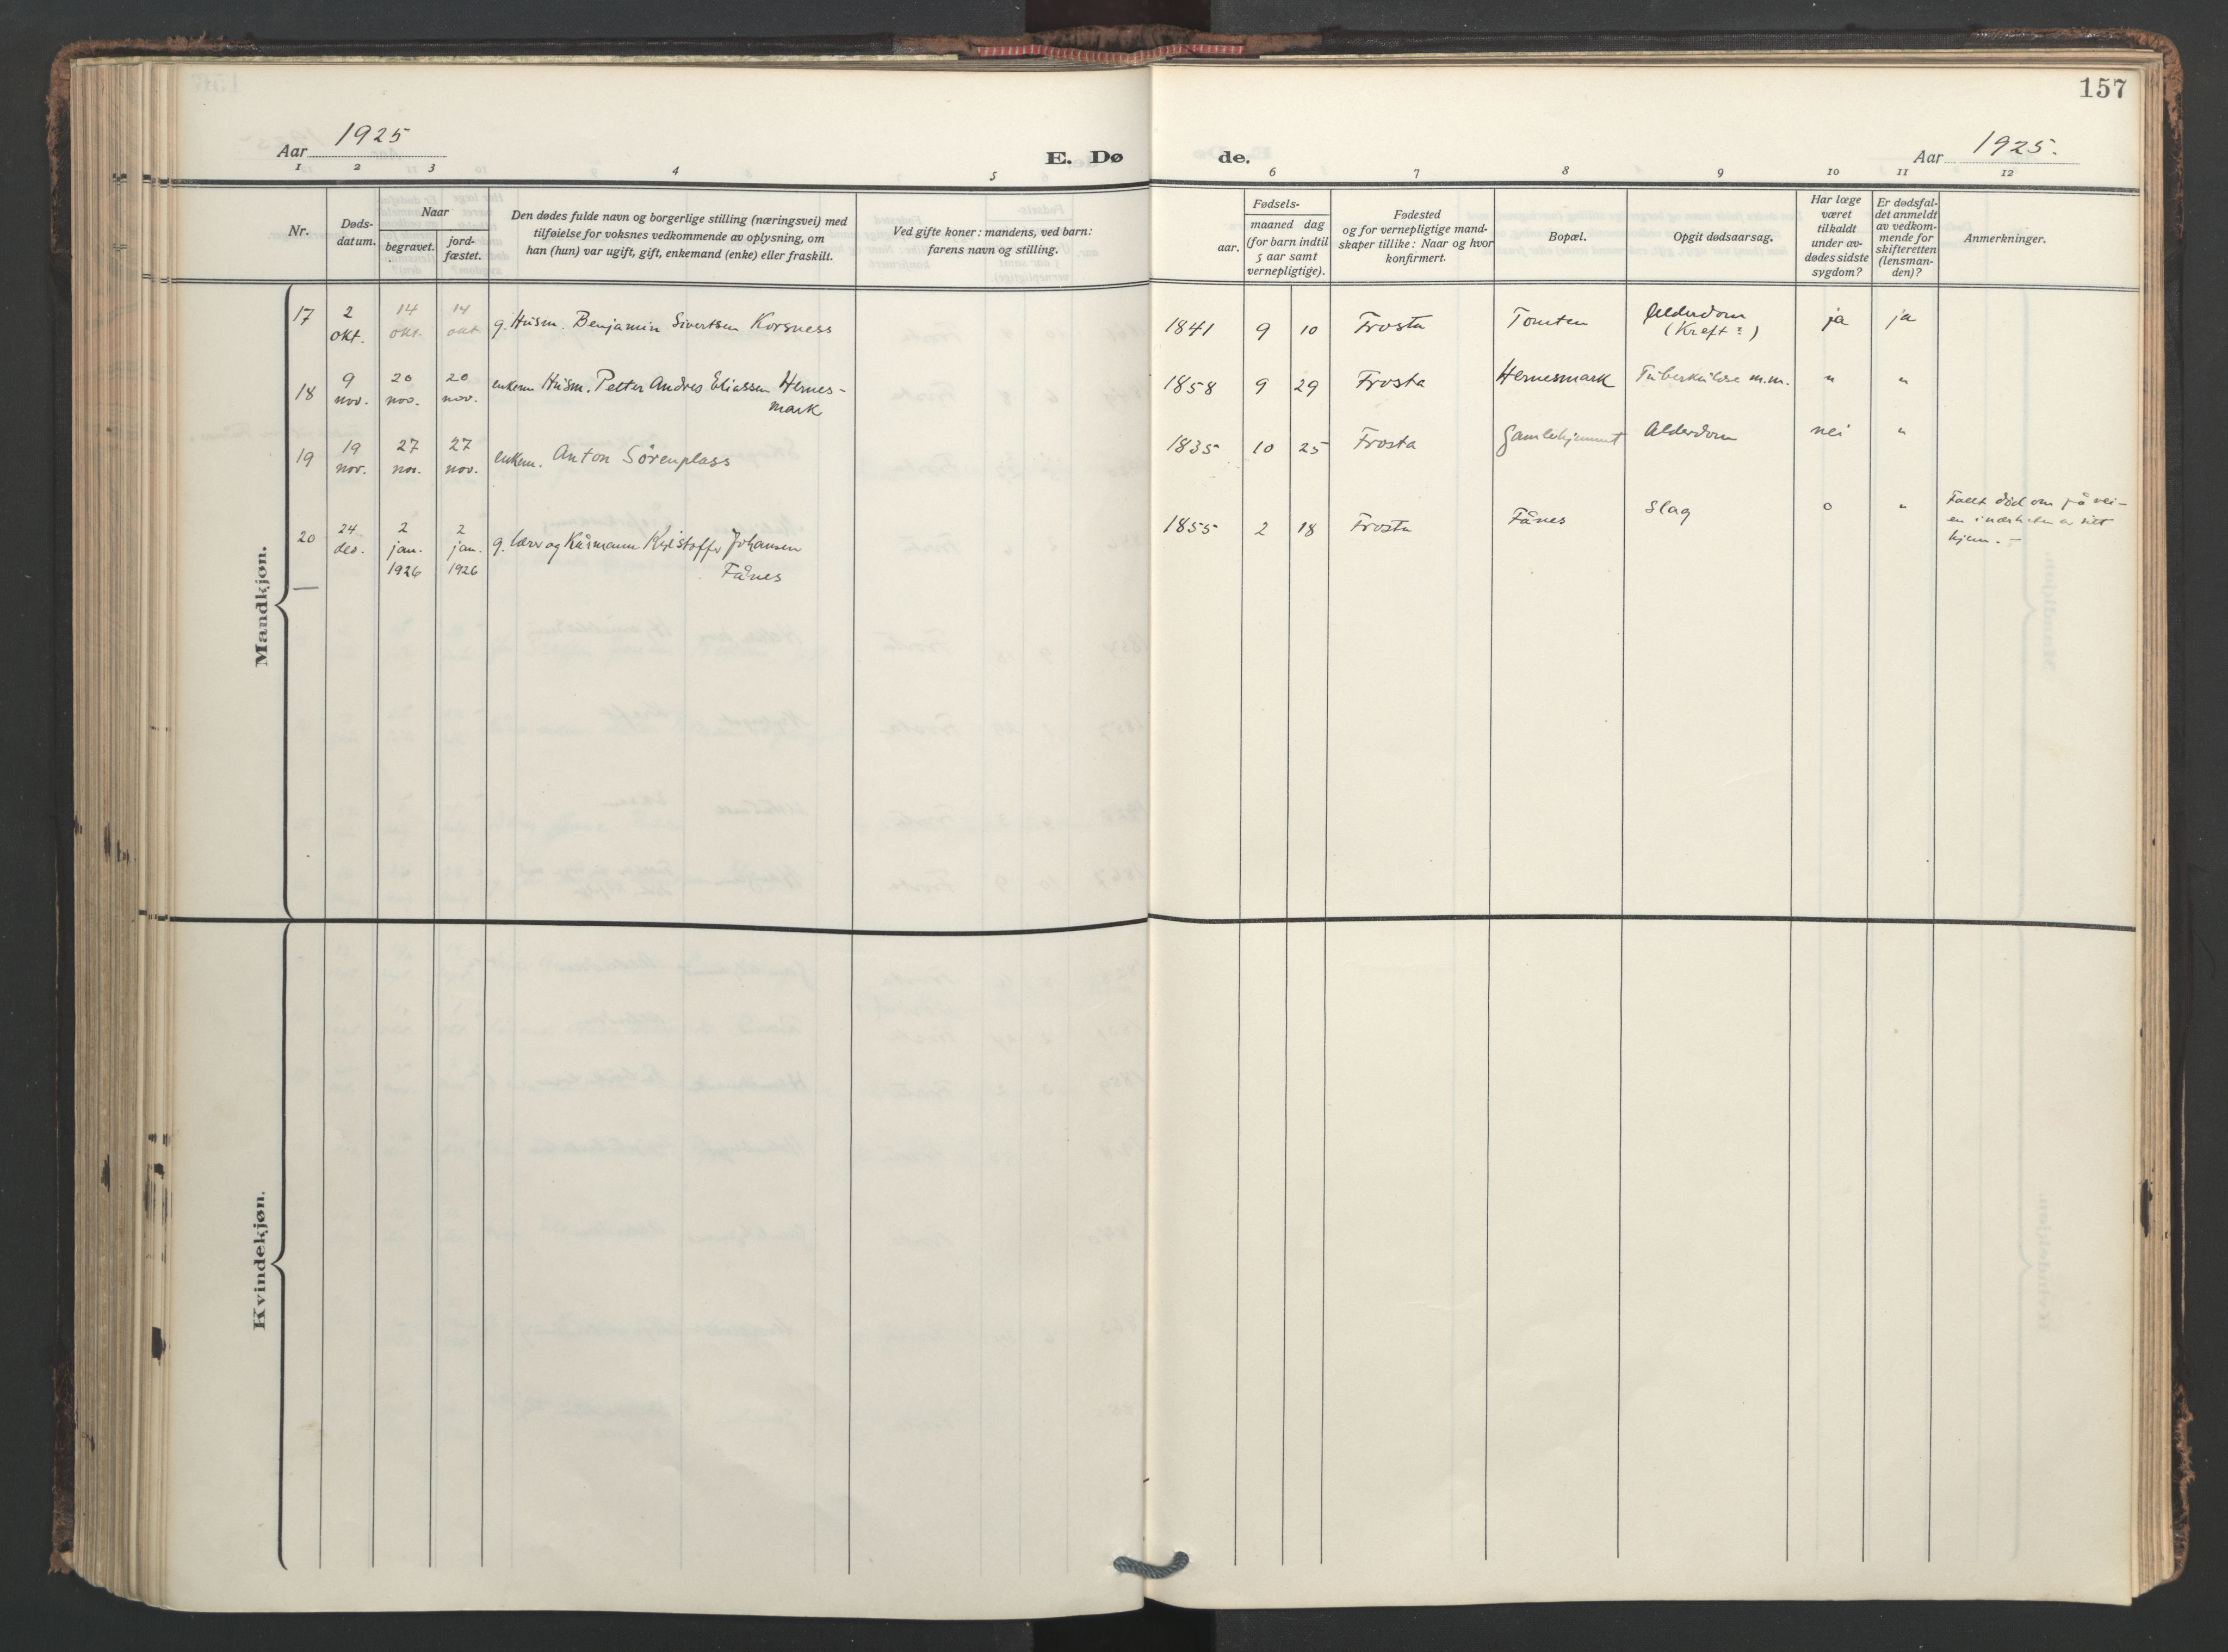 157
Aar 1925
E. Dø
de.
Aar 1925.
1 2 3 4 5 6 7 8 9 10 11 12
Nr.
Døds-
datum.
Naar
begravet.
jord-
fæstet.
Den dødes fulde navn og borgerlige stilling (næringsvei) med
tilføielse for voksnes vedkommende av oplysning, om
han (hun) var ugift, gift, enkemand (enke) eller fraskilt.
Ved gifte koner: mandens, ved barn:
farens navn og stilling.
Fødsels-
aar.
maaned dag
(for barn indtil
5 aar samt
vernepligtige).
Fødested
og for vernepligtige mand-
skaper tillike: Naar og hvor
konfirmert.
Bopæl.
Opgit dødsaarsag.
Har læge
været
tilkaldt
under av-
dødes sidste
sygdom?
Er dødsfal-
det anmeldt
av vedkom-
mende for
skifteretten
(lensman-
den)?
Anmerkninger.
Mandkjøn.
17 2 okt. 14 okt. 14 okt. g. Husm. Benjamin Sivertsen Korsness 1841 9 10 Frosta Tomten Alderdom (Kreft?) ja ja
18 9 nov. 20 nov. 20 nov. enkem Husm. Petter Andreas Eliassen Hernes-
mark 1858 9 29 Frosta Hernesmark Tuberkulose m.m. " "
19 19 nov. 27 nov. 27 nov. enkem. Anton Sørenplass 1835 10 25 Frosta Gamlehjemmet Alderdom nei "
20 24 des. 2 jan. 1926 2 jan. 1926 g. lærer og Kårmann Kristoffer Johansen
Fånes 1855 2 18 Frosta Fånes Slag o " Falt død om på vei-
en i nærheten av sitt
hjem. —
Kvindekjøn.